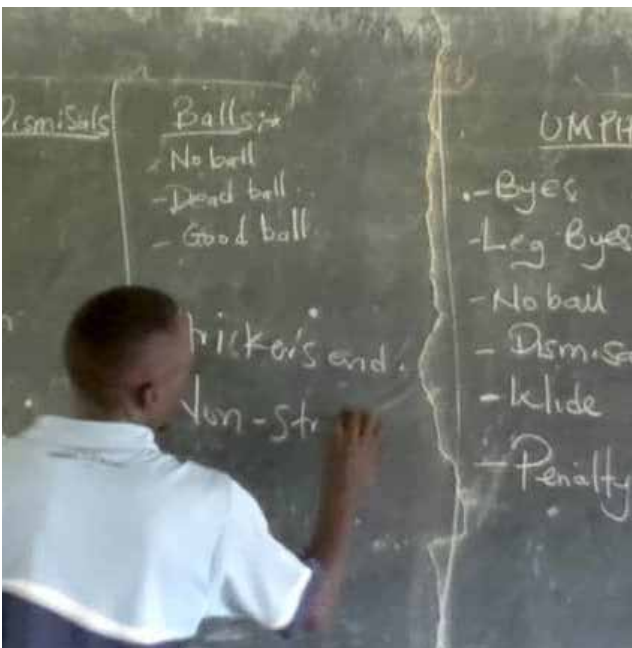 Dismisals
Balls:-
- No ball
- Dead ball
- Good ball
tricker's end.
Non-str
UMPI
- Byes
- Leg Byes
- No ball
- Dismisa
- Wide
- Penalty